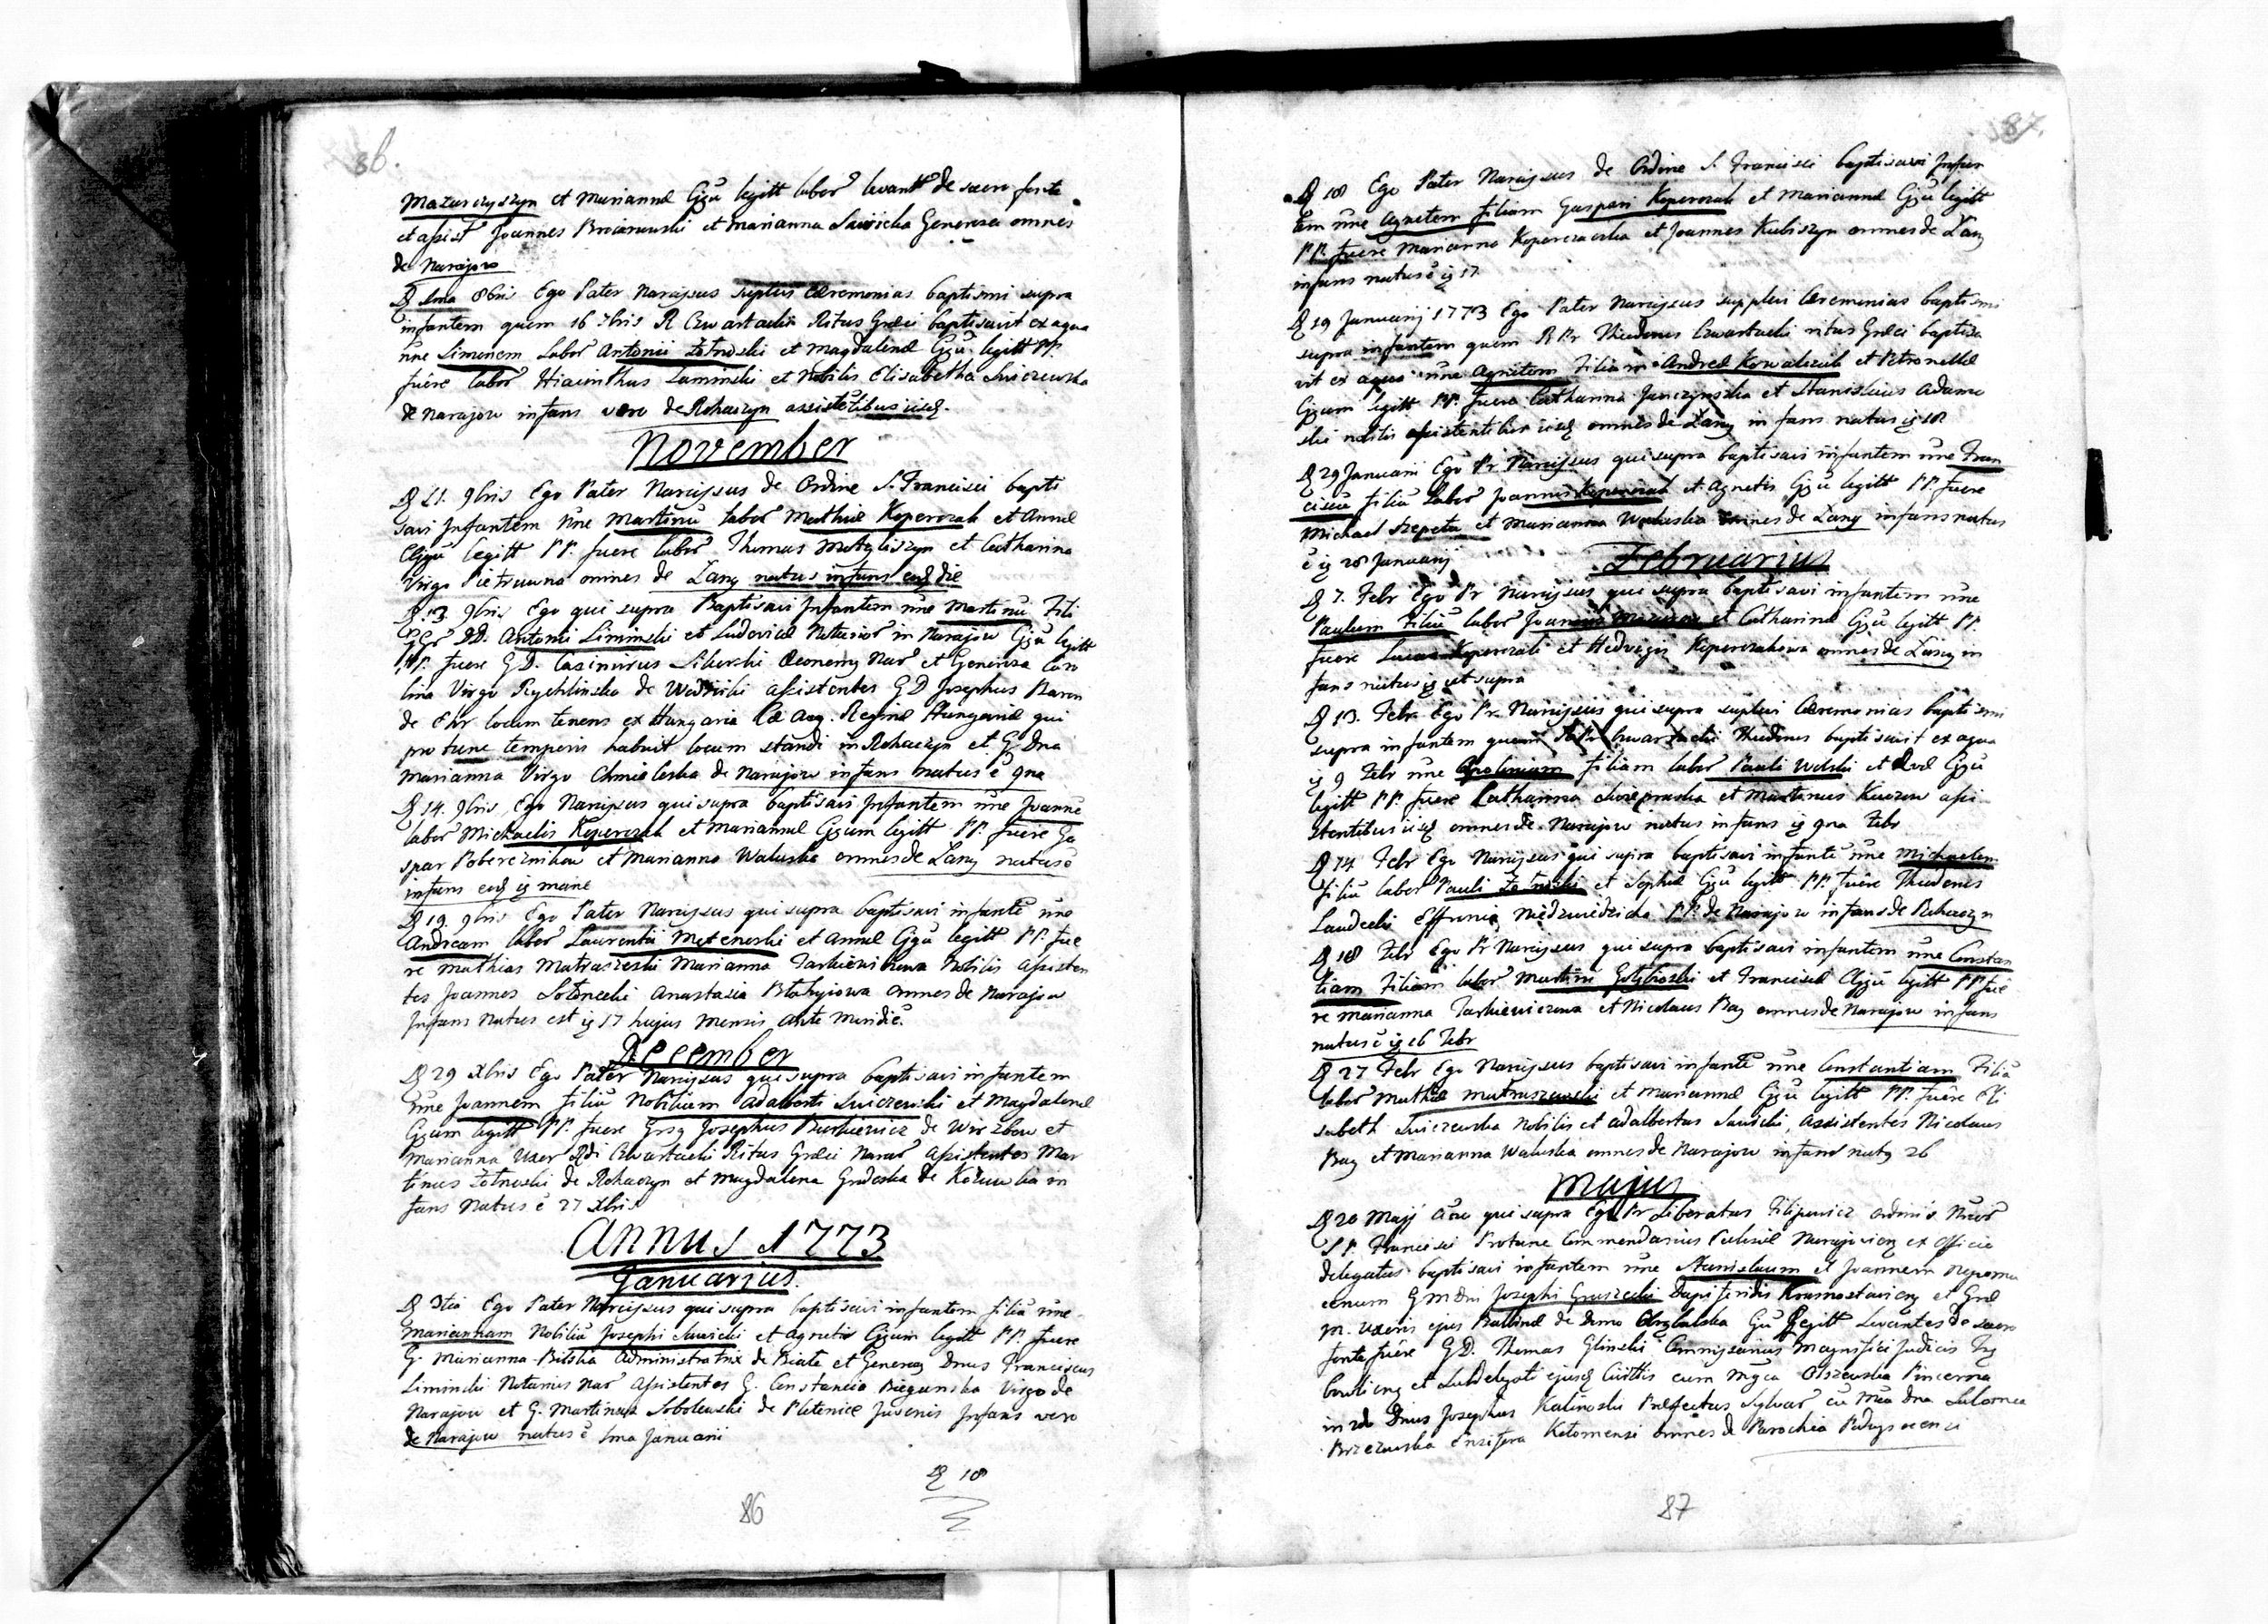 86.
Mazurczyszyn et Mariannæ Cjgū legitt labor levantt de sacro fonte
et assist Joannes et Marianna Sawicka Generosa omnes
de Narajow
D 1ma 8bris Ego Pater Narcyssus suplevi Cæremonias baptismi supra
infantem quem 16 7bris R Czwartacki Ritus Græci baptisavit ex aqua
nne Simonem labor Antonii Żołnoski et Magdalenæ Cjgū legitt PP.
fuere labor Hiacinthus Laminski et Nobilis Elisabetha Swiczewska
de Narajow infans vero de Rohaczyn assistētibus iisđ.
November
D 11. 9bris Ego Pater Narcyssus de Ordine S. Francisci bapti
savi Infantem Nne Martinū labor Mathiæ Koperczak et Annæ
Cjgū legitt PP. fuere labor Thomas Motyliszyn et Catharina
Virgo Pietruwna omnes de Łany natus infans eađ die
D 13 9bris Ego qui supra Baptisavi Infantem nne Martinū Fili
GG DD. Antonii Liminski et Ludovicæ Notarior in Narajow Cjgū legitt
PP. fuere GD. Casimirus Siberski Œconomg Nar et Generosa Caro
lina Virgo Rychlinska de assistentes GD Josephus Baron
de Ehr locum tenens ex Hungaria Cæ Aug. Reginæ Hungariæ qui
pro tunc temporis habuit locum standi in Rohaczyn et G Dna
Marianna Virgo Chmieleska de Narajow infans natus ē 9na
D 14. 9bris Ego Narcyssus qui supra baptisavi Infantem nne Joannē
labor Michaelis Koperczak et Mariannæ Cjgum legitt PP. fuere Ga
spar Pobereznikow et Marianna Waluska omnes de Łany natus ē
infans eađ ig mane
D 19. 9bris Ego Pater Narcyssus qui supra baptisavi infantē nne
Andream labor Laurentii Meteneski et Annæ Cjgū legitt PP. fue
re Mathias Matraszeski Marianna Tarkiewiczowa Nobilis Assisten
tes Joannes Anastasia omnes de Narajow
Infans Natus est ig 17 hujus Mensis ante Meridiē.
December
D 29 Xbris Ego Pater Narcyssus qui supra baptisavi infantem
nne Joannem filiū Nobilium Adalberti Swiczewski et Magdalenæ
Cjgum legitt PP. fuere Josephus Burkiewicz de Wierzbow et
Marianna Uxor Rđi Czwartacki Ritus Græci Narar Assistentes Mar
tinus Żołnoski de Rohaczyn et Magdalena Grodeska de in
fans Natus ē 27 Xbris
Annus 1773
Januarius.
D 3tia Ego Pater Narcyssus qui supra baptisavi infantem filiā nne
Mariannam Nobiliū Josephi Sawicki et Agnetis Cjgum legitt PP. fuere
G. Marianna Bilska Administratrix de Białe et Generosg Dnus Franciscus
Liminski Notarius Nar Assistentes G. Constancia Biegunska Virgo de
Narajow et G. Martinus Sobolewski de Juvenis Infans vero
de Narajow natus ē 1ma Januarii
D 18
86
87.
D 18 Ego Pater Narcyssus de Ordine S. Francisci baptisavi Infan
tem nne Agnetem filiam Gaspari Koperczak et Mariannæ Cjgū legitt
PP. fuere Marianna Koperczaczka et Joannes Kubiszyn omnes de Łany
infans natus ē ig 17
D 19 Januarij 1773 Ego Pater Narcyssus supplevi Ceremonias baptismi
supra infantem quem R Pr Theodorus Czwartacki ritus Græci baptisa
vit ex aqua nne Agnetem Filiam Andreæ Kowalczuk et Petronellæ
Cjgum legitt PP. fuere Catharina Janczynska et Stanislaus Adamo
ski nobilis assistentibus iisđ omnes de Łany infans natus ig 18
D 29 Januarii Ego Pr Narcyssus qui supra baptisavi infantem nne Fran
ciscū filiū labor Joannis Koperczak et Agnetis Cjgū legitt PP. fuere
Michael Szepeta et Marianna Waluska omnes de Łany infans natus
ē ig 28 Januarij
Februarius
D 7. Febr Ego Pr Narcyssus qui supra baptisavi infantem nne
Paulum Filiū labor Joannis et Catharinæ Cjgū legitt PP.
fuere Lucas Koperczak et Hedvigis Koperczakowa omnes de Łany in
fans natus ig ut supra
D 13. Febr Ego Pr Narcyssus qui supra suplevi Cæremonias baptismi
supra infantem quem Czwartacki Theodorus baptisavit ex aqua
ig 9 Febr nne Apoloniam filiam labor Pauli Wolski et Evæ Cjgū
legitt PP. fuere Catharina et Martinus assi
stentibus iisđ omnes de Narajow natus infans ig 9na Febr
D 14 Febr Ego Narcyssus qui supra baptisavi infantē nne Michaelem
filiū labor Pauli Żołnoski et Sophiæ Cjgū legitt PP. fuere Theodorus
Laudecki Effrunia Niedzwiedzicka PP. de Narajow infans de Rohaczyn
D 18 Febr Ego Pr Narcyssus qui supra baptisavi infantem nne Constan
tiam Filiam labor Martini Gołęboski et Franciscæ Cjgū legitt PP fue
re Marianna Tarkiewiczowa et Nicolaus Bag omnes de Narajow infans
natus ē ig 16 Febr
D 27 Febr Ego Narcyssus baptisavi infantē nne Constantiam Filiā
labor Mathiæ Matraszewski et Mariannæ Cjgū legitt PP. fuere Eli
sabeth Swiczewska Nobilis et Adalbertus Sawicki, assistentes Nicolaus
Bag et Marianna Waluska omnes de Narajow infans natg 26
Majus
D 20 Majj qui supra Ego Pr Liberatus Filipowicz Ordinis
S P. Francisci Protunc Commendarius Ecclesiæ Narajoviens ex Officio
delegatus baptisavi infantem nne Stanislaum et Joannem Nepomu
cenum GMDni Josephi Gruszecki Dapiferidis Krasnostaviens et Gnæ
M. Uxoris ejus Balbinæ de Domo Cjgū Legitt Levantes de sacro
fonte fuere GD. Thomas Glinski Magnifici Judicis
et Subdelegati ejusđ Civittis cum Mgca Olszewska Pincerna
in 2do Dnus Josephus Kalinoski Præfectus Sylvar cū Mca Dna Salomea
Brzezuska Ensifera omnes de Parochia
87